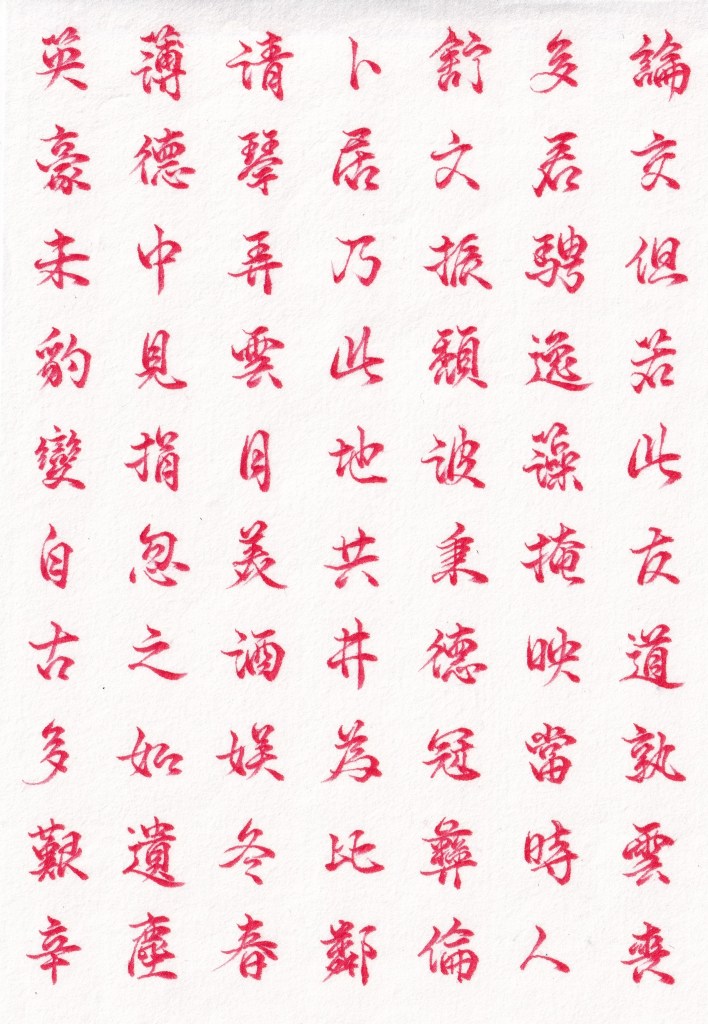 論交但若此友道孰雲喪
多君騁逸藻掩映當時人
舒文振頹波秉德冠彝倫
卜居乃此地共井為比鄰
清琴弄雲月美酒娱冬春
薄德中見捐忽之如遺塵
英豪未豹變自古多艱辛